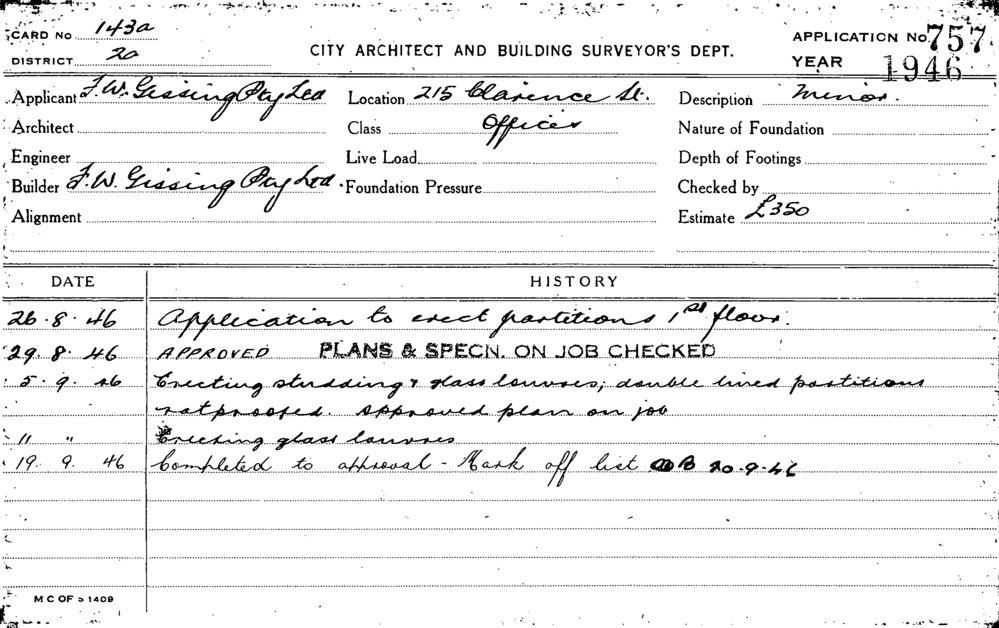 CARD No 143a
DISTRICT 2a
CITY ARCHITECT AND BUILDING SURVEYOR'S DEPT.
APPLICATION No. 757
YEAR 1946
Applicant F.W. Gissing Pty Ltd Location 215 Clarence St. Description Minor.
Architect Class Offices Nature of Foundation
Engineer Live Load Depth of Footings
Builder F.W. Gissing Pty Ltd. Foundation Pressure Checked by
Alignment Estimate £350
DATE HISTORY
26.8.46 Application to erect partitions 1st floor.
29.8.46 APPROVED PLANS & SPECN. ON JOB CHECKED
5.9.46 Erecting studding & glass louvres; double lined partitions
ratproofed. Approved plan on job
11 " Erecting glass louvres
19.9.46 Completed to approval - Mark off list 20.9.46
M C OF S 1409